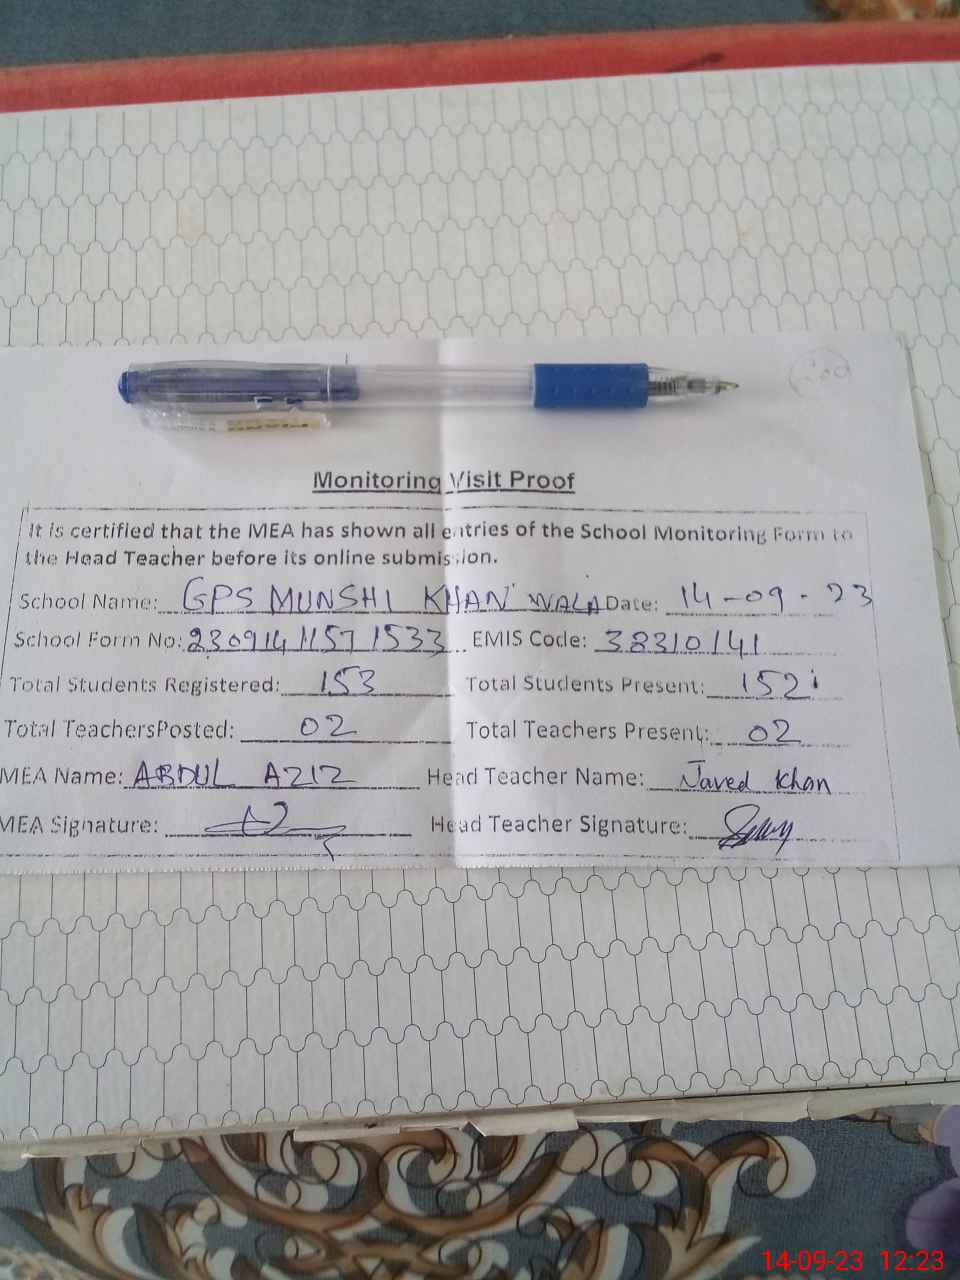 Monitoring Visit Proof
It is certified that the MEA has shown all entries of the School Monitoring Form to
the Head Teacher before its online submission.
School Name: GPS MUNSHI KHAN WALA Date: 14-09-23
School Form No: 23091411571533 EMIS Code: 38310141
Total Students Registered: 153 Total Students Present: 152
Total TeachersPosted: 02 Total Teachers Present: 02
MEA Name: ABDUL AZIZ Head Teacher Name: Javed Khan
MEA Signature: Head Teacher Signature:
14-09-23 12:23